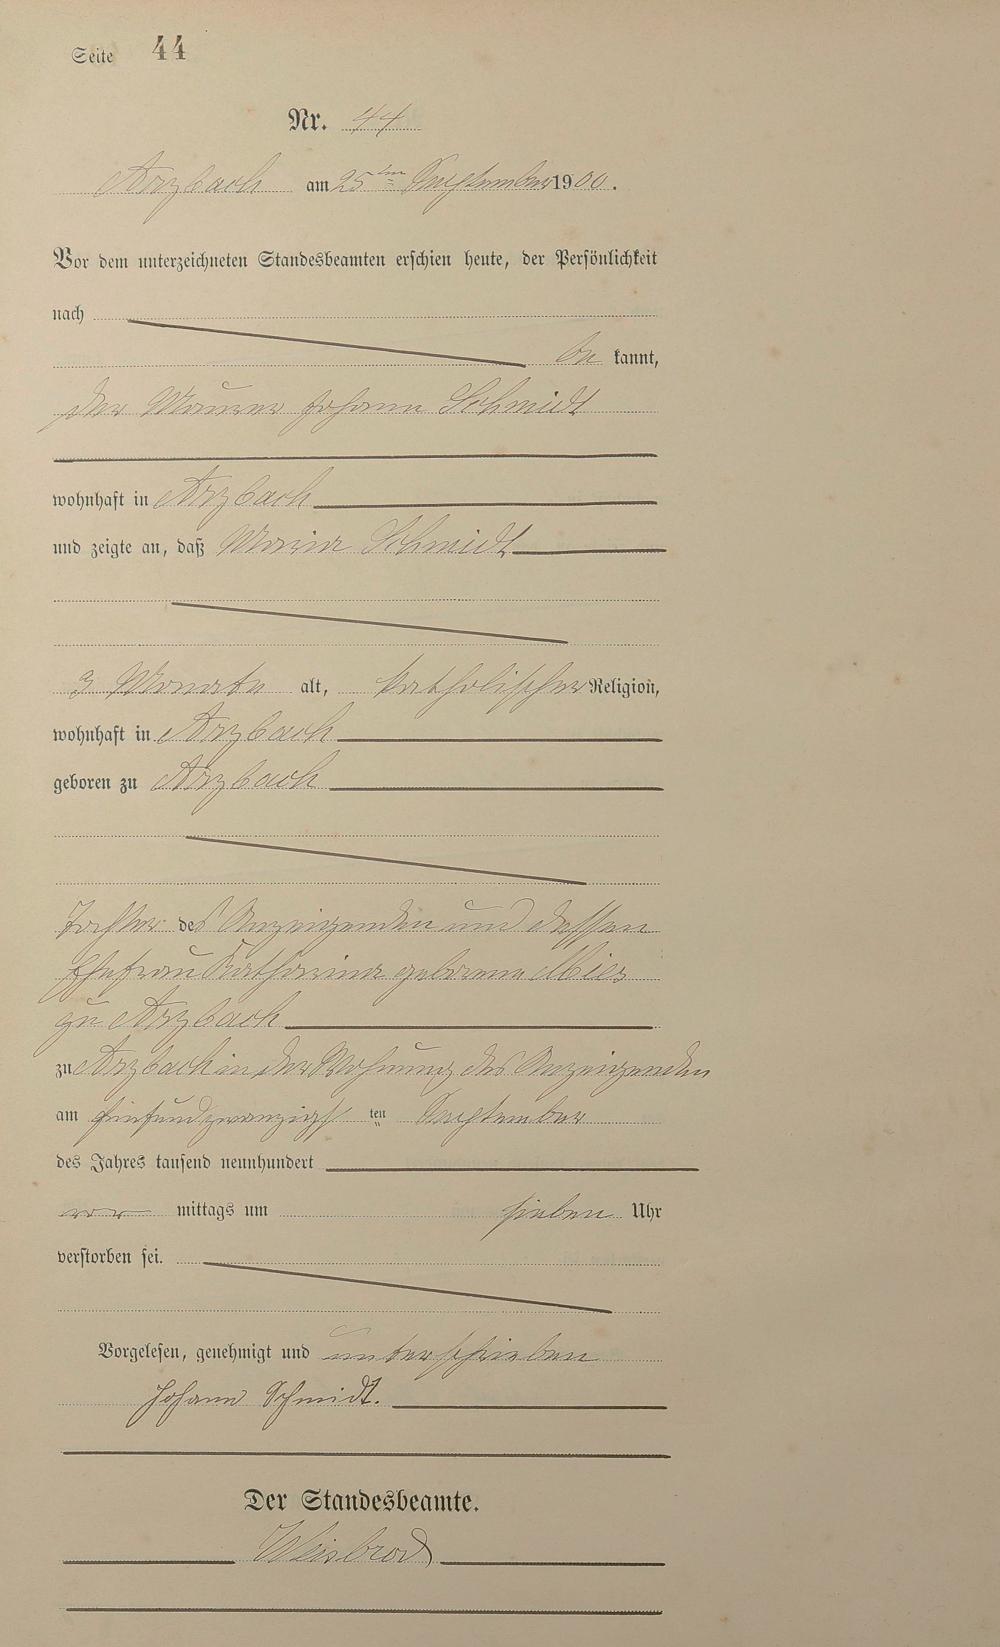 Seite 44
Nr. 44
Arzbach am 25ten September 1900.
Vor dem unterzeichneten Standesbeamten erschien heute, der Persönlichkeit
nach
be kannt,
der Maurer Johann Schmidt
wohnhaft in Arzbach
und zeigte an, daß Maria Schmidt
3 Monate alt, katholischer Religion,
wohnhaft in Arzbach
geboren zu Arzbach
Tochter des Anzeigenden und dessen
Ehefrau Katharina geborene Mies
zu Arzbach
zu Arzbach in der Wohnung des Anzeigenden
am fünfundzwanzigs ten September
des Jahres tausend neunhundert
vor mittags um sieben Uhr
verstorben sei.
Vorgelesen, genehmigt und unterschrieben
Johann Schmidt.
Der Standesbeamte.
Weisbrod